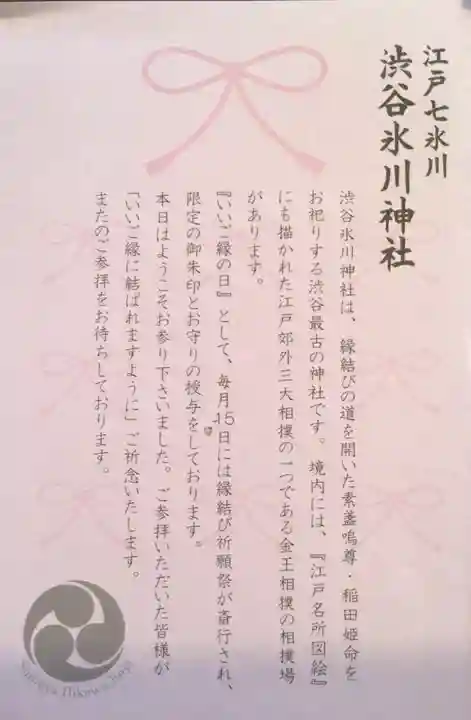 江戸七氷川
渋谷氷川神社
渋谷氷川神社は、縁結びの道を開いた素盞嗚尊・稲田姫命を
お祀りする渋谷最古の神社です。境内には、『江戸名所図絵』
にも描かれた江戸郊外三大相撲の一つである金王相撲の相撲場
があります。
『いいご縁の日』として、毎月15日には縁結び祈願祭が斎行され、
限定の御朱印とお守りの授与をしております。
本日はようこそお参り下さいました。ご参拝いただいた皆様が
「いいご縁に結ばれますように」ご祈念いたします。
またのご参拝をお待ちしております。
Shibuya Hikawa Shrine